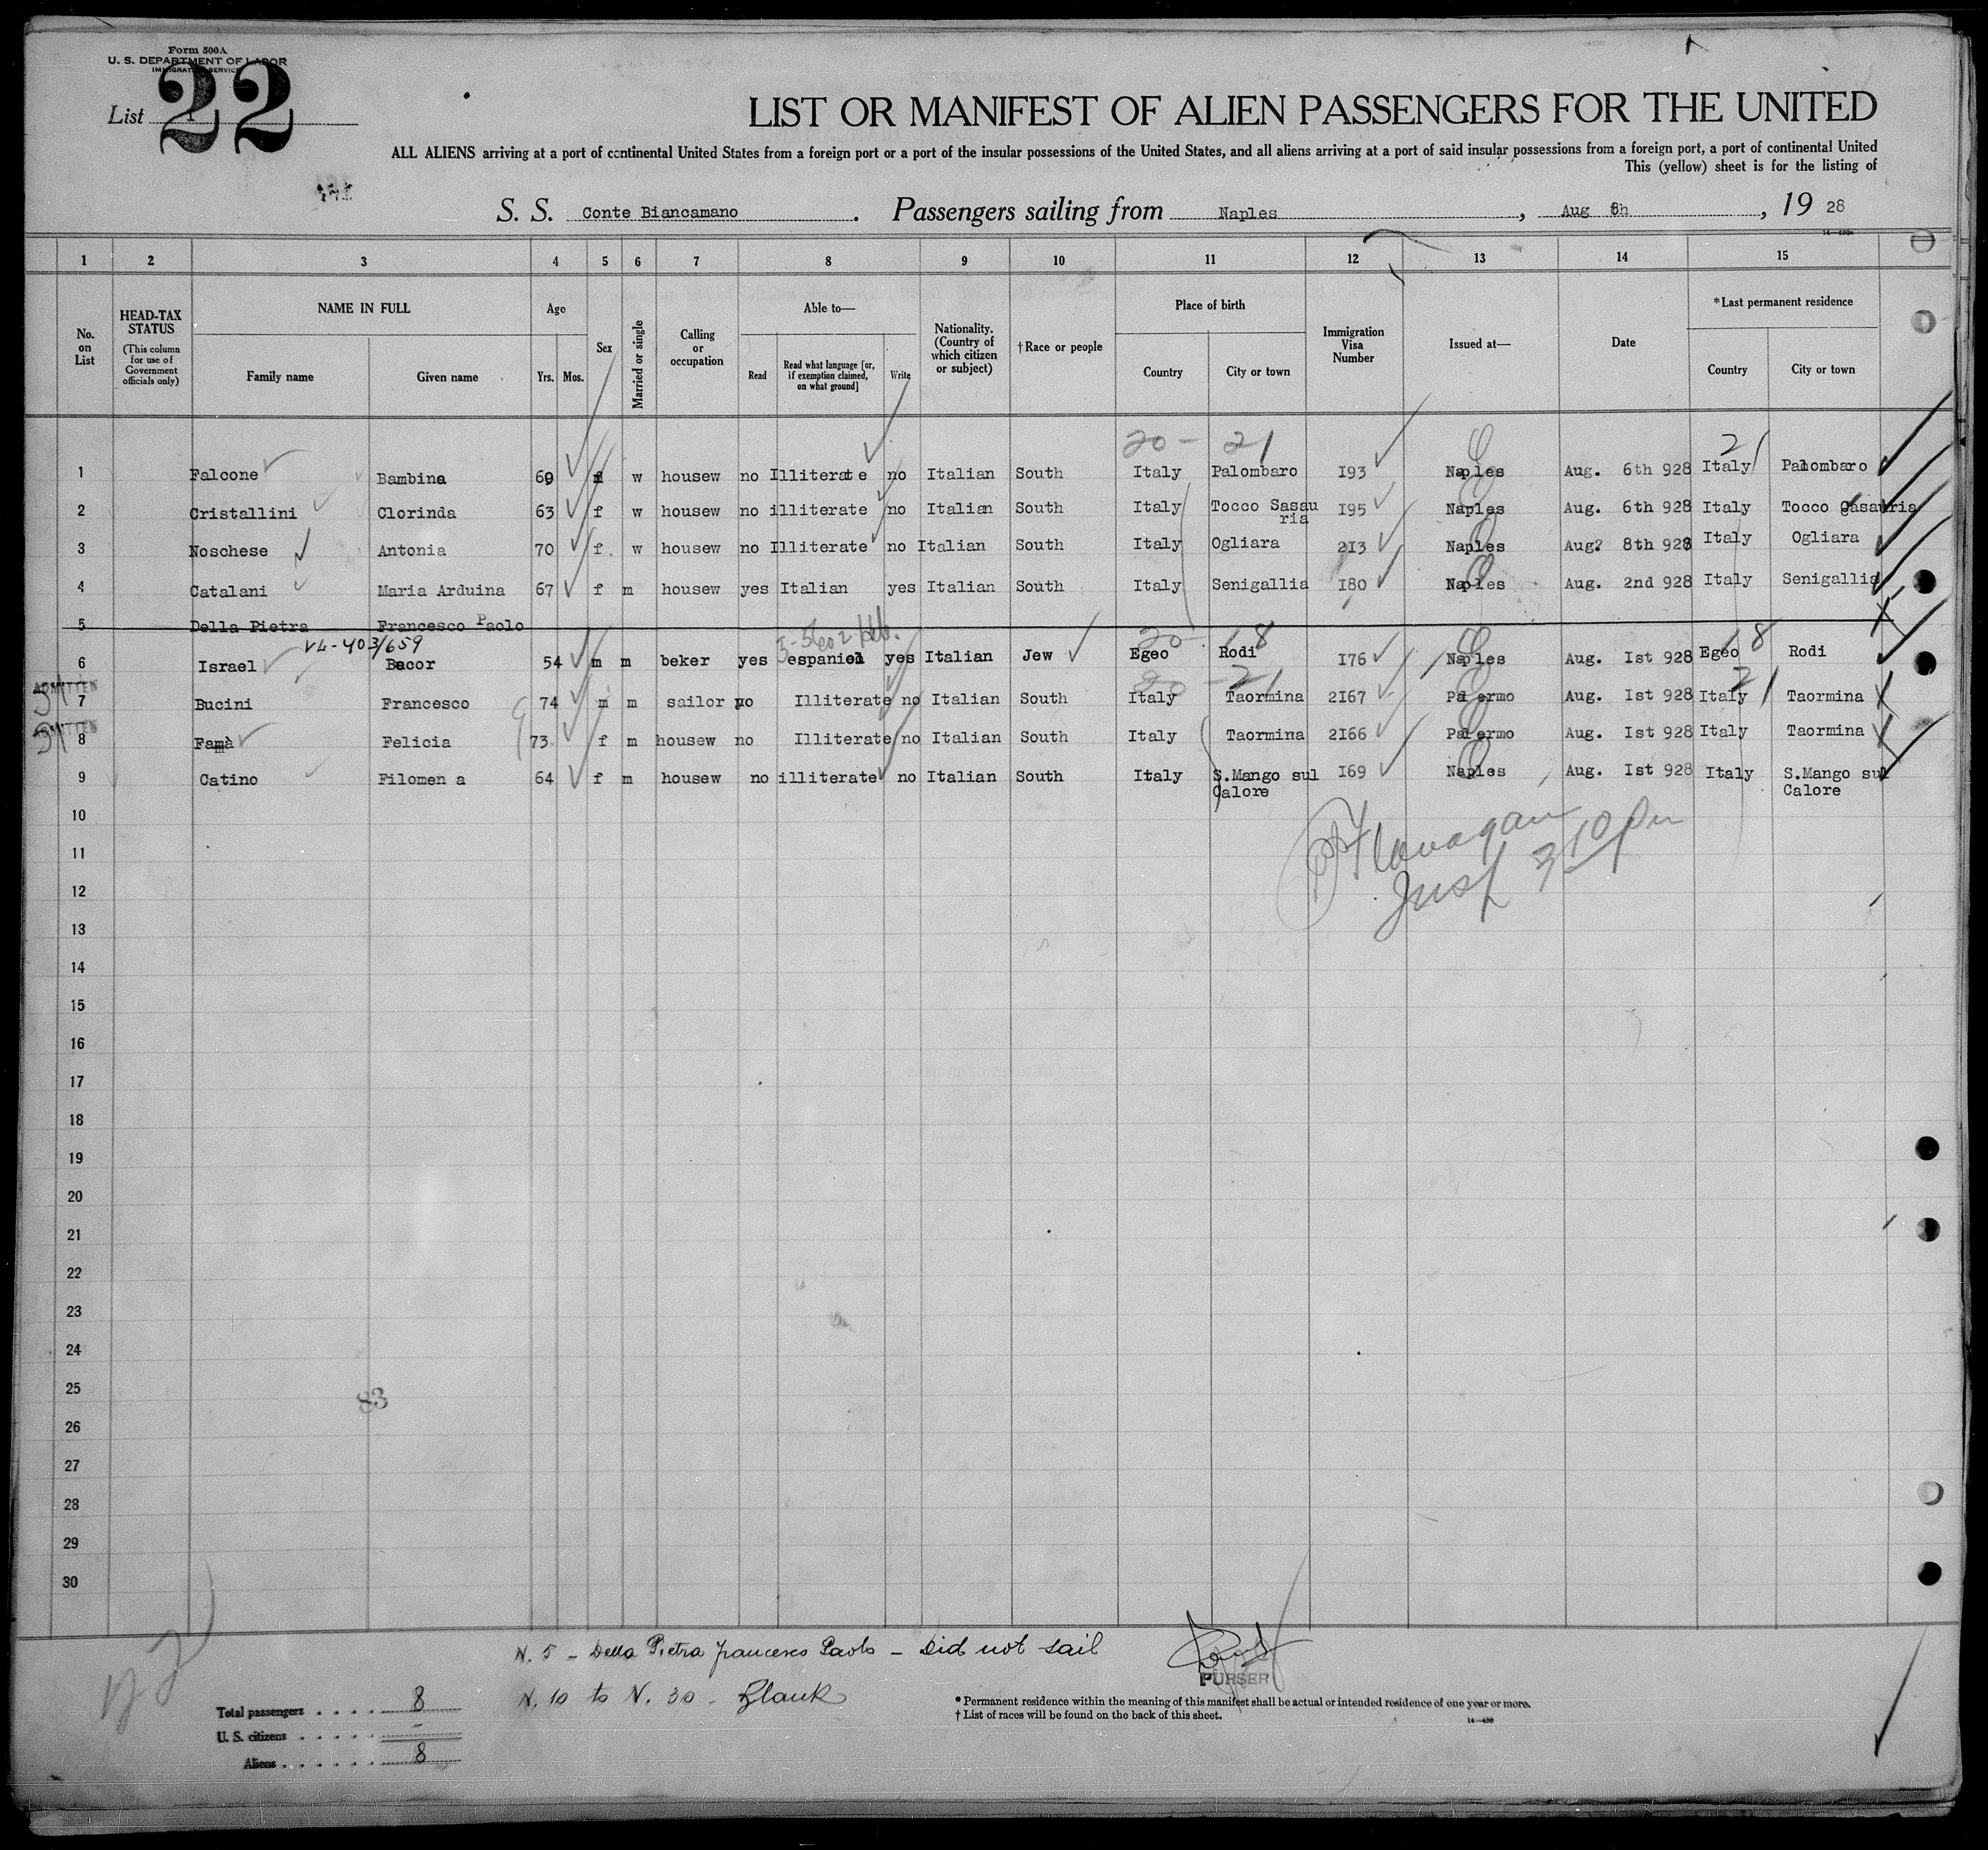 Form 500A
U. S. DEPARTMENT OF LABOR
IMMIGRATION SERVICE
List 22
LIST OR MANIFEST OF ALIEN PASSENGERS FOR THE UNITED
ALL ALIENS arriving at a port of continental United States from a foreign port or a port of the insular possessions of the United States, and all aliens arriving at a port of said insular possessions from a foreign port, a port of continental United
This (yellow) sheet is for the listing of
S. S. Conte Biancamano. Passengers sailing from Naples, Aug 8h, 19 28
1 2 3 4 5 6 7 8 9 10 11 12 13 14 15
No. on List
HEAD-TAX STATUS (This column for use of Government officials only)
NAME IN FULL
Family name Given name
Age
Yrs. Mos.
Sex
Married or single
Calling or occupation
Able to—
Read Read what language [or, if exemption claimed, on what ground] Write
Nationality. (Country of which citizen or subject)
†Race or people
Place of birth
Country City or town
Immigration Visa Number
Issued at—
Date
*Last permanent residence
Country City or town
20 - 21 21
1 Falcone Bambina 69 f w housew no Illiterate no Italian South Italy Palombaro I93 Naples Aug. 6th 928 Italy Palombaro
2 Cristallini Clorinda 63 f w housew no illiterate no Italian South Italy Tocco Sasau ria I95 Naples Aug. 6th 928 Italy Tocco Casauria
3 Noschese Antonia 70 f w housew no Illiterate no Italian South Italy Ogliara 2I3 Naples Aug? 8th 928 Italy Ogliara
4 Catalani Maria Arduina 67 f m housew yes Italian yes Italian South Italy Senigallia I80 Naples Aug. 2nd 928 Italy Senigallia
5 Della Pietra Francesco Paolo
VL-403/659
20 18 18
6 Israel Becor 54 m m beker yes espaniol yes Italian Jew Egeo Rodi I76 Naples Aug. Ist 928 Egeo Rodi
20 - 21 21
ADMITTED
7 Bucini Francesco 74 m m sailor no Illiterate no Italian South Italy Taormina 2I67 Palermo Aug. Ist 928 Italy Taormina
ADMITTED
8 Famà Felicia 73 f m housew no Illiterate no Italian South Italy Taormina 2I66 Palermo Aug. Ist 928 Italy Taormina
9 Catino Filomen a 64 f m housew no illiterate no Italian South Italy S.Mango sul Calore I69 Naples Aug. Ist 928 Italy S.Mango sul Calore
10
Flanagan
11
Insp 3 10 Pm
12
13
14
15
16
17
18
19
20
21
22
23
24
25
83
26
27
28
29
30
N. 5 - Della Pietra Francesco Paolo - Did not sail
PURSER
N. 10 to N. 30 - Blank
Total passengers . . . . 8
U. S. citizens . . . . . -
Aliens . . . . . . 8
* Permanent residence within the meaning of this manifest shall be actual or intended residence of one year or more.
† List of races will be found on the back of this sheet.
14—430